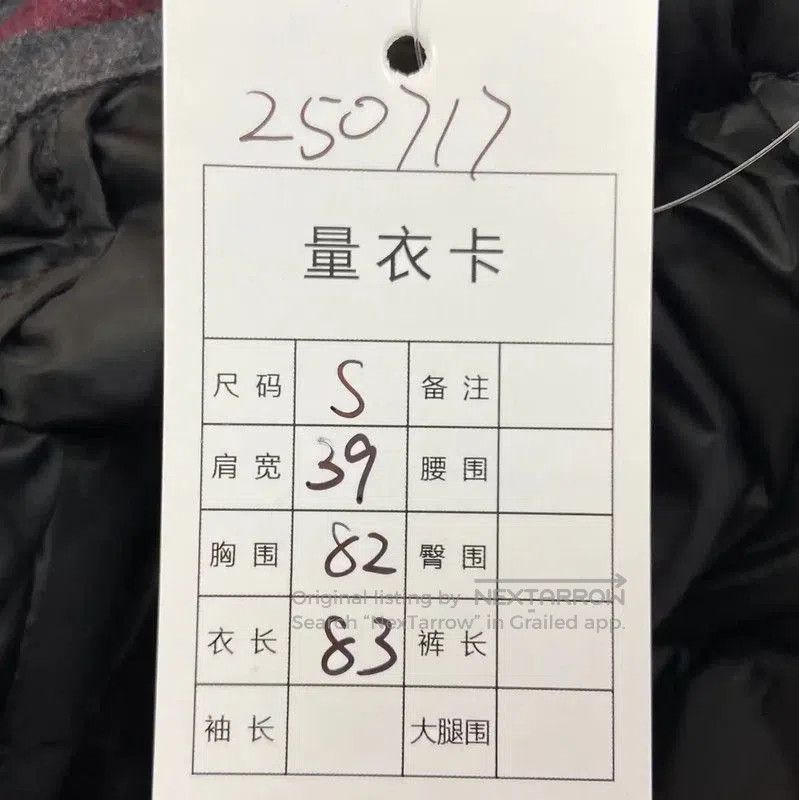 250717
量衣卡
尺码 S 备注
肩宽 39 腰围
胸围 82 臀围
Original listing by NEXTARROW
Search “NexTarrow” in Grailed app.
衣长 83 裤长
袖长 大腿围